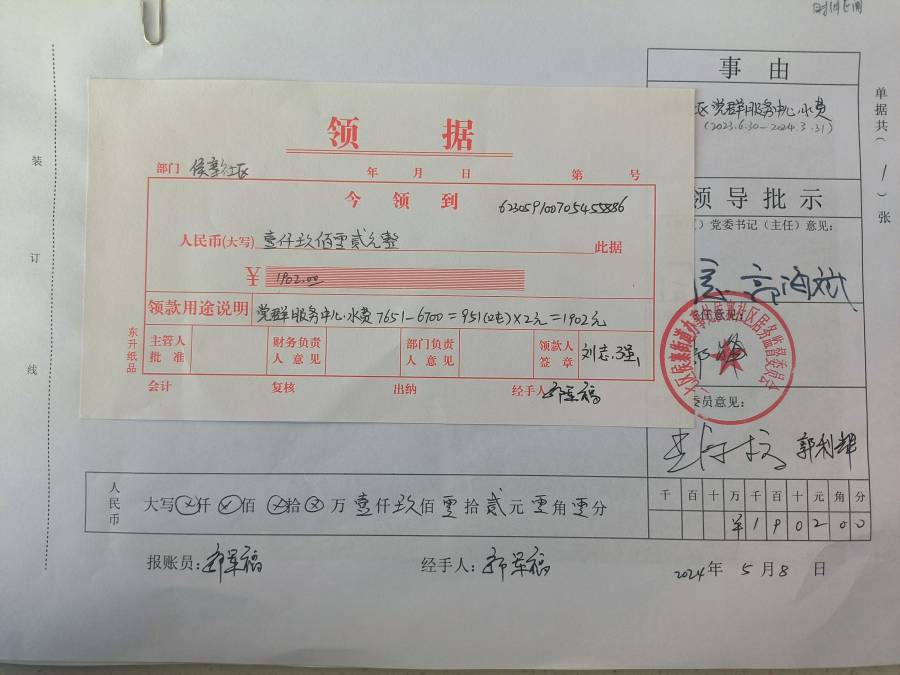 事由
区党群服务中心水费
(2023.6.30-2024.3.31)
单据共(1)张
领导批示
党委书记(主任)意见:
任意见:
委员意见:
郭利
千百十万千百十元角分
¥190200
装
订
线
领据
部门 侯寨社区 年 月 日 第 号
今领到 6230591007054555886
人民币(大写)壹仟玖佰零贰元整 此据
¥ 1902.00
领款用途说明 党群服务中心水费7651-6700=951(吨)×2元=1902元
主管人批准
财务负责人意见
部门负责人意见
领款人签章 刘志强
会计 复核 出纳 经手人
东升纸品
人民币
大写⊗仟⊗佰⊗拾⊗万壹仟玖佰零拾贰元零角零分
报账员: 经手人:
2024年5月8日